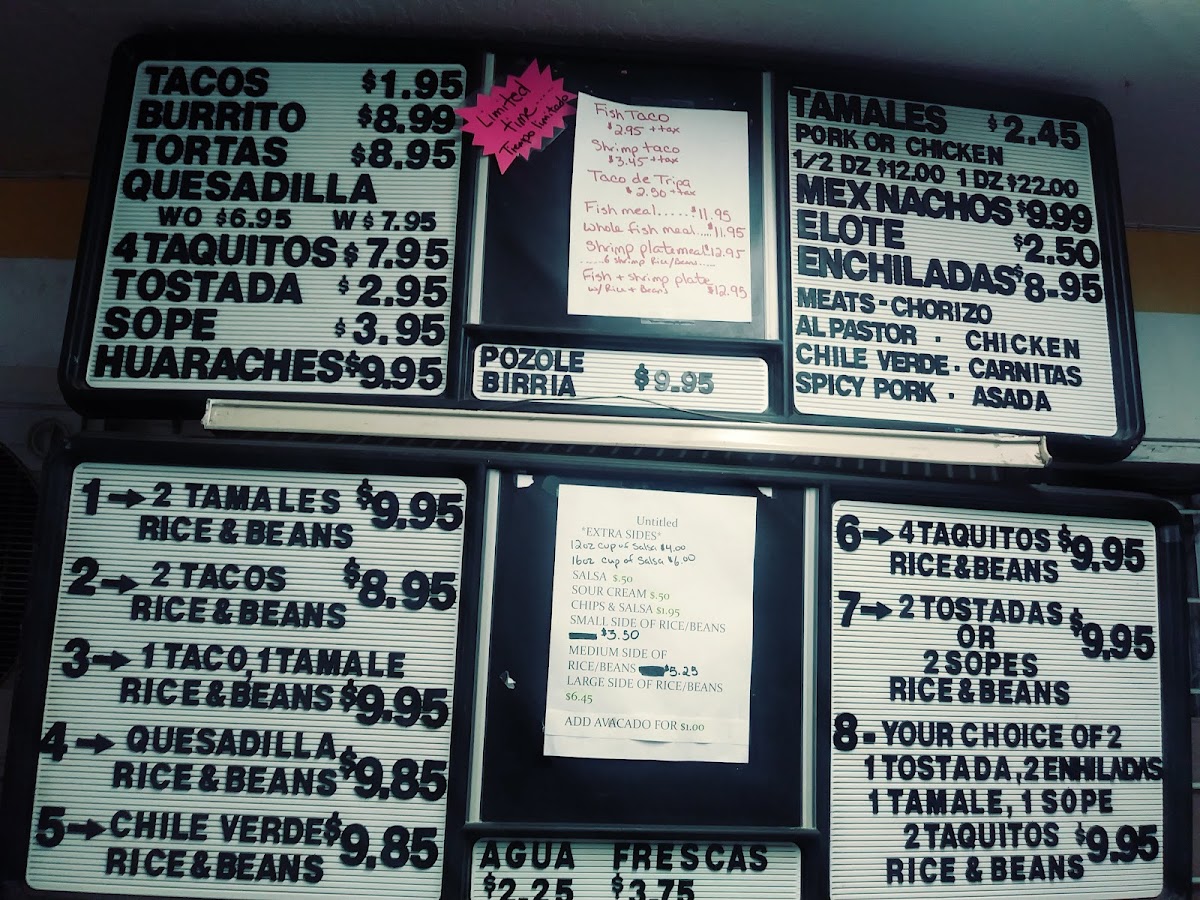 TACOS $1.95
BURRITO $8.99
TORTAS $8.95
QUESADILLA
WO $6.95 W $7.95
4 TAQUITOS $7.95
TOSTADA $2.95
SOPE $3.95
HUARACHES $9.95
Limited
time....
Tiempo limitado
Fish Taco
$2.95 + tax
Shrimp taco
$3.45 + tax
Taco de Tripa
$2.50 + tax
Fish meal......$11.95
Whole fish meal....$11.95
Shrimp plate meal $12.95
......6 shrimp Rice/Beans.....
Fish + shrimp plate
w/ Rice + Beans $12.95
POZOLE
BIRRIA $9.95
TAMALES $2.45
PORK OR CHICKEN
1/2 DZ $12.00 1 DZ $22.00
MEX NACHOS $9.99
ELOTE $2.50
ENCHILADAS $8.95
MEATS - CHORIZO
AL PASTOR . CHICKEN
CHILE VERDE - CARNITAS
SPICY PORK . ASADA
1→2 TAMALES $9.95
RICE & BEANS
2→2 TACOS $8.95
RICE & BEANS
3→1 TACO, 1 TAMALE
RICE & BEANS $9.95
4→QUESADILLA
RICE & BEANS $9.85
5→CHILE VERDE $9.85
RICE & BEANS
Untitled
*EXTRA SIDES*
12oz cup of salsa $4.00
16oz cup of salsa $6.00
SALSA $.50
SOUR CREAM $.50
CHIPS & SALSA $1.95
SMALL SIDE OF RICE/BEANS
$3.50
MEDIUM SIDE OF
RICE/BEANS $5.25
LARGE SIDE OF RICE/BEANS
$6.45
ADD AVACADO FOR $1.00
AGUA FRESCAS
$2.25 $3.75
6→4 TAQUITOS $9.95
RICE & BEANS
7→2 TOSTADAS $9.95
OR
2 SOPES
RICE & BEANS
8- YOUR CHOICE OF 2
1 TOSTADA, 2 ENHILADAS
1 TAMALE, 1 SOPE
2 TAQUITOS $9.95
RICE & BEANS